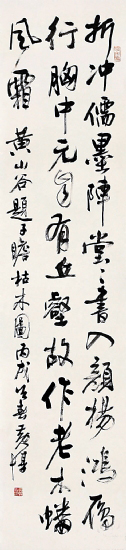 折冲儒墨陣堂堂書入顔揚鴻雁
行胸中元自有丘壑故作老木蟠
風霜 黄山谷題子瞻枯木圖丙戌